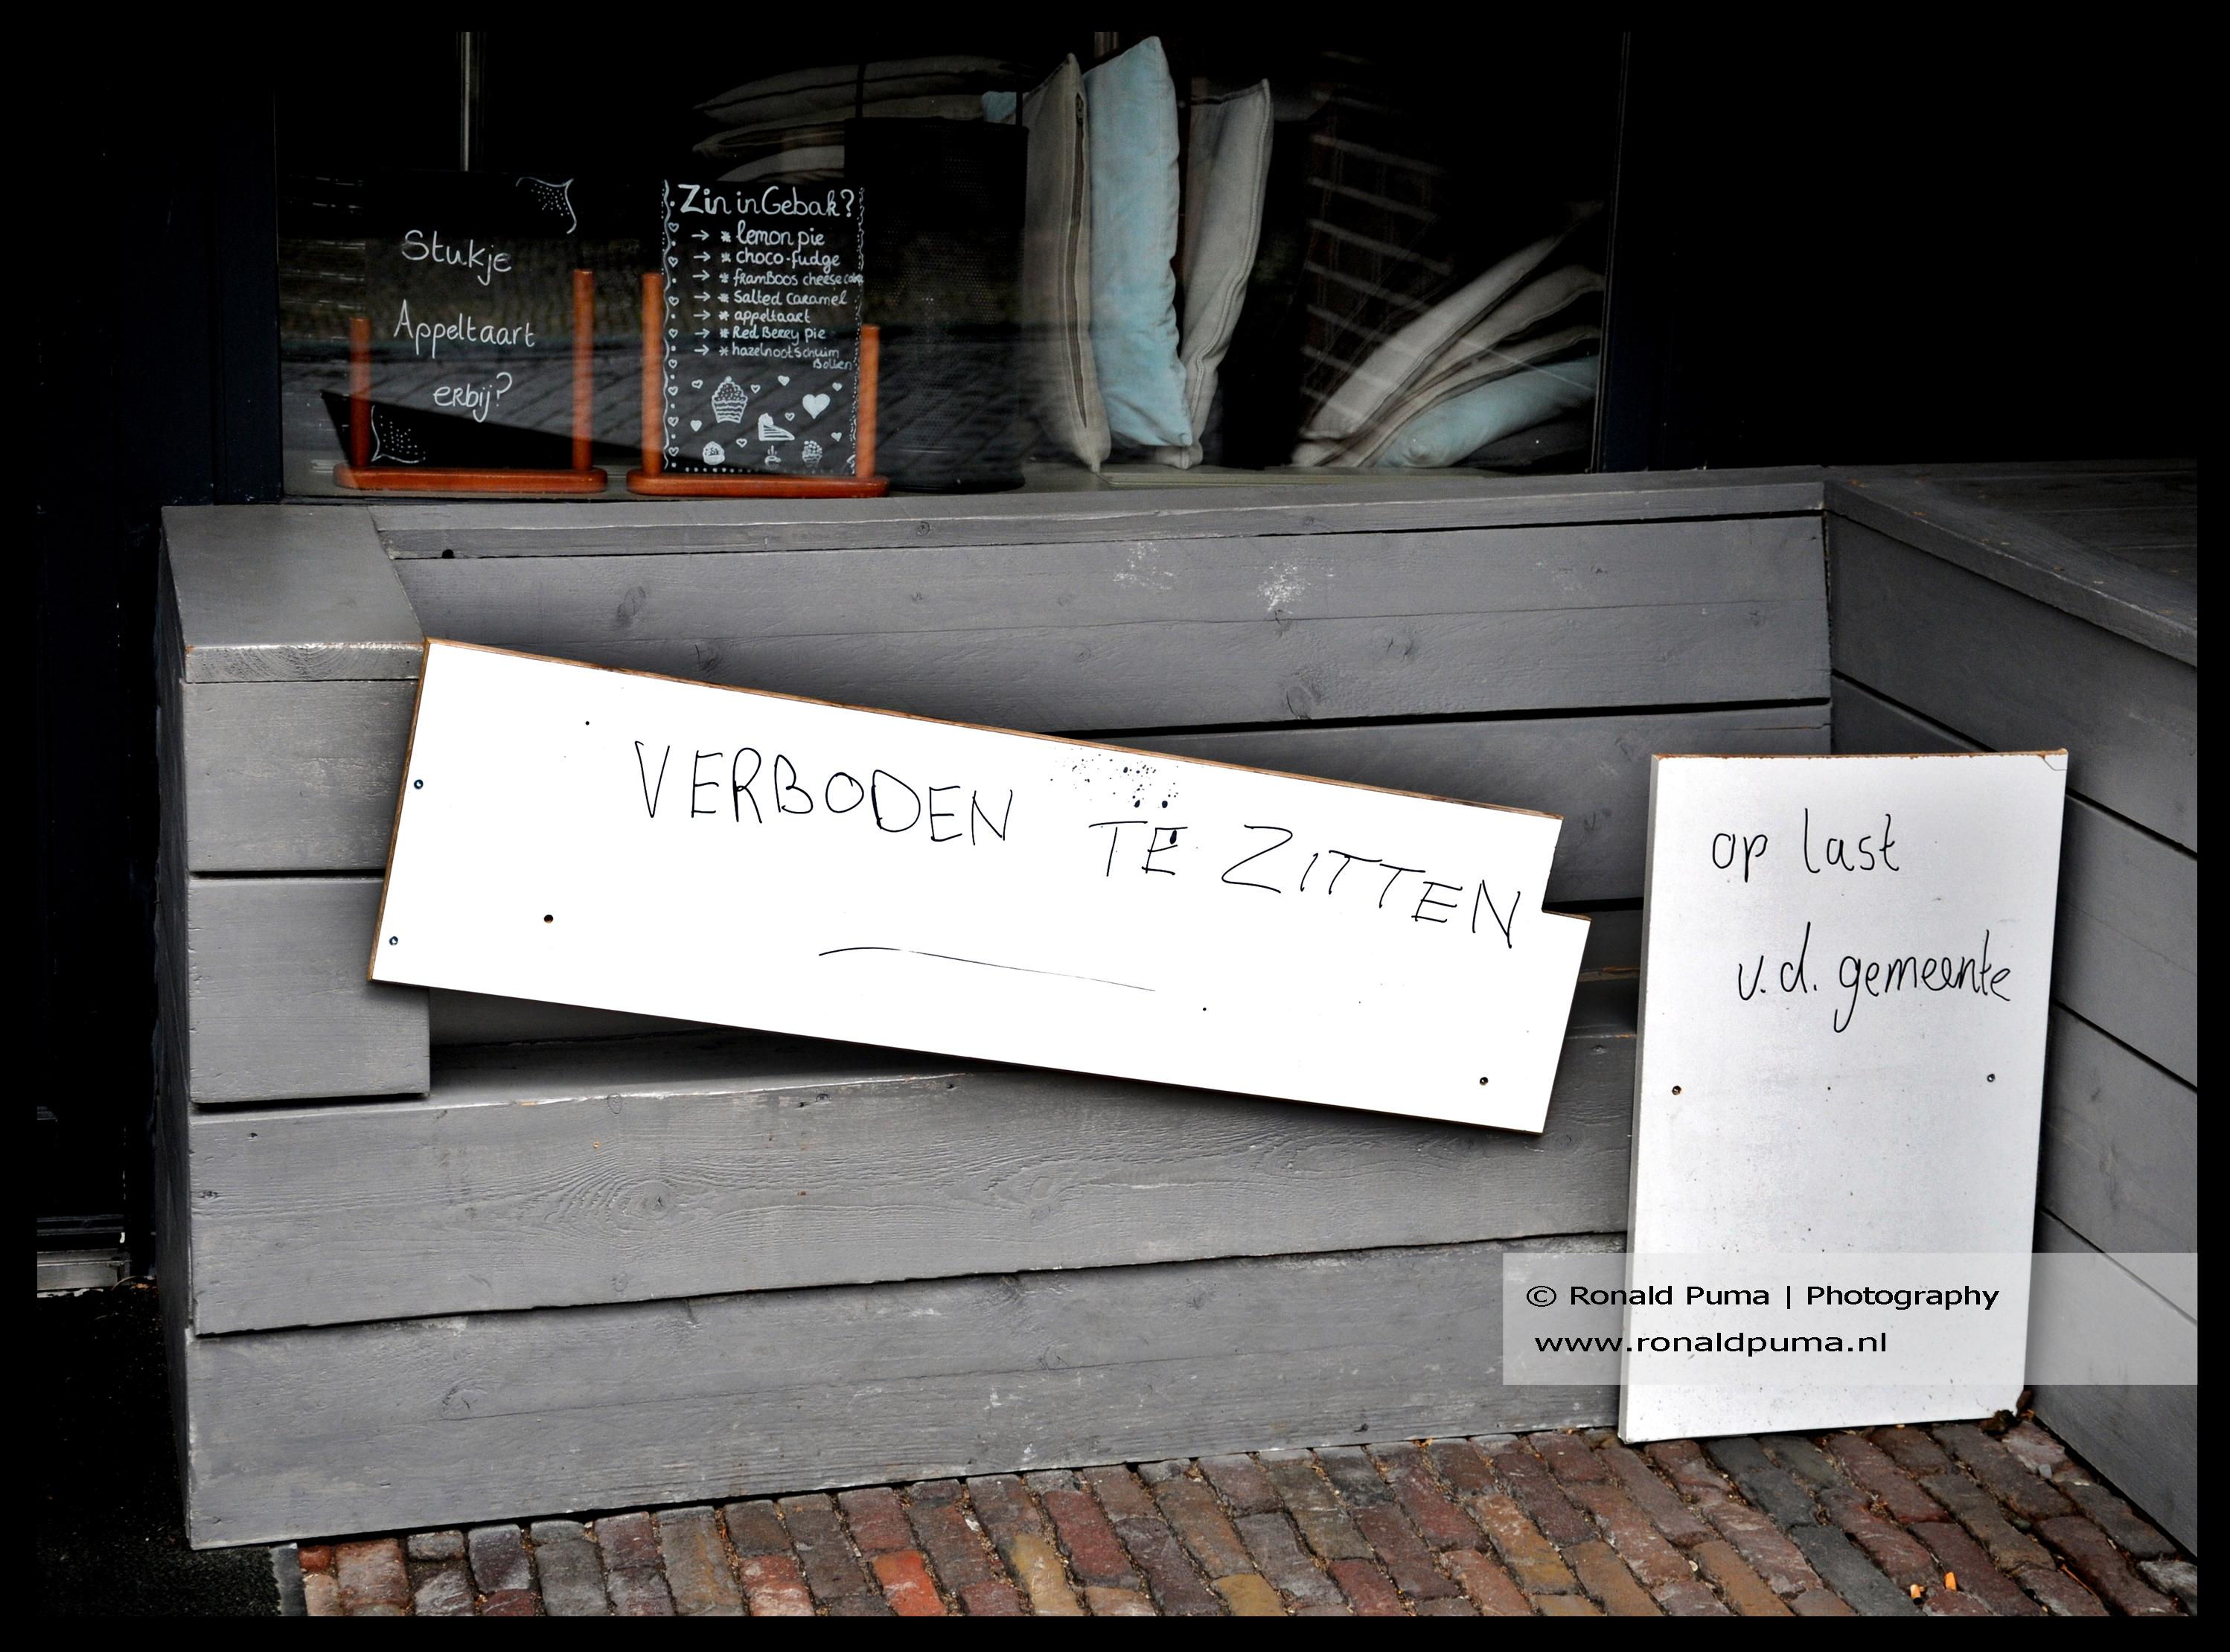 Stukje
Appeltaart
erbij?
Zin in Gebak?
→ * lemon pie
→ * choco-fudge
→ * framboos cheesecake
→ * Salted Caramel
→ * appeltaart
→ * Red Berry Pie
→ * hazelnootschuim
Bollen
VERBODEN TE ZITTEN
op last
v.d. gemeente
© Ronald Puma | Photography
www.ronaldpuma.nl